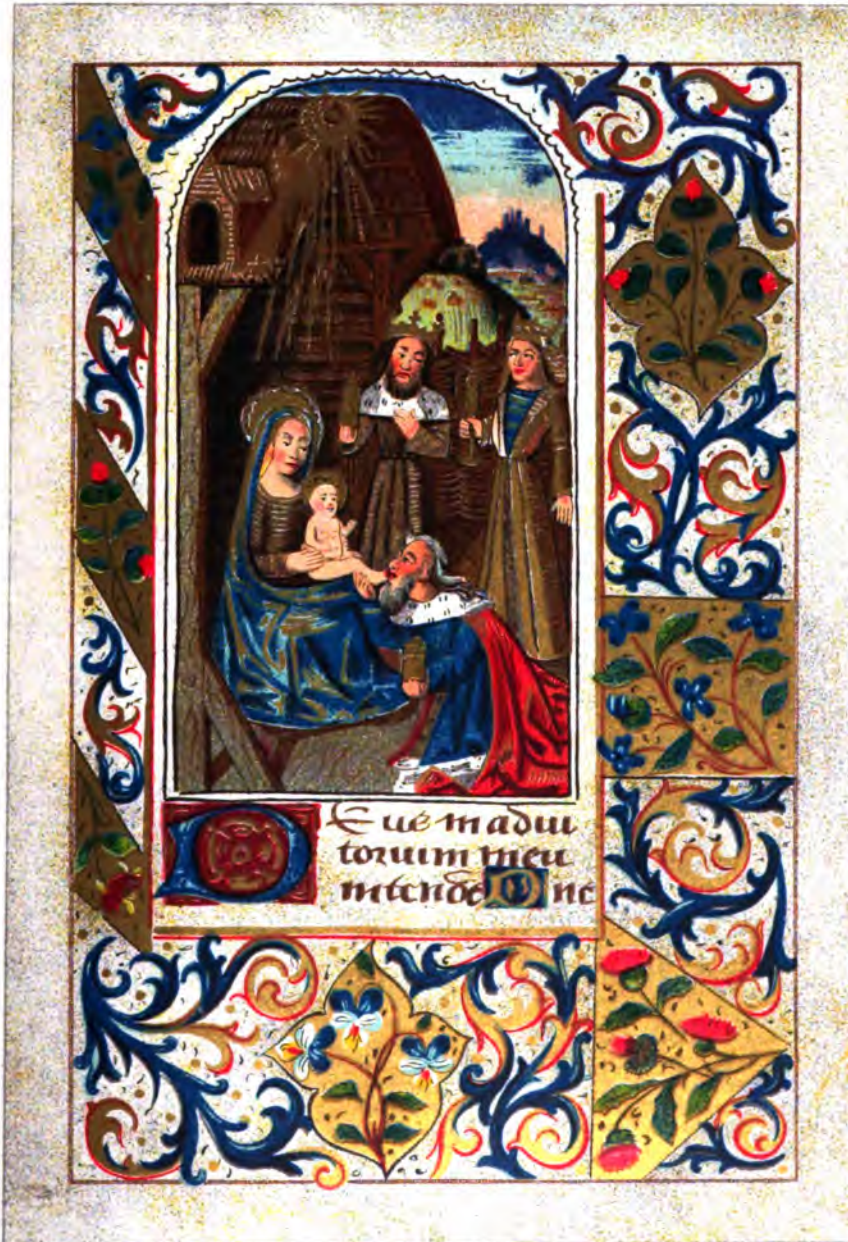 DEus in adiu
toriuim meu
intende Dne